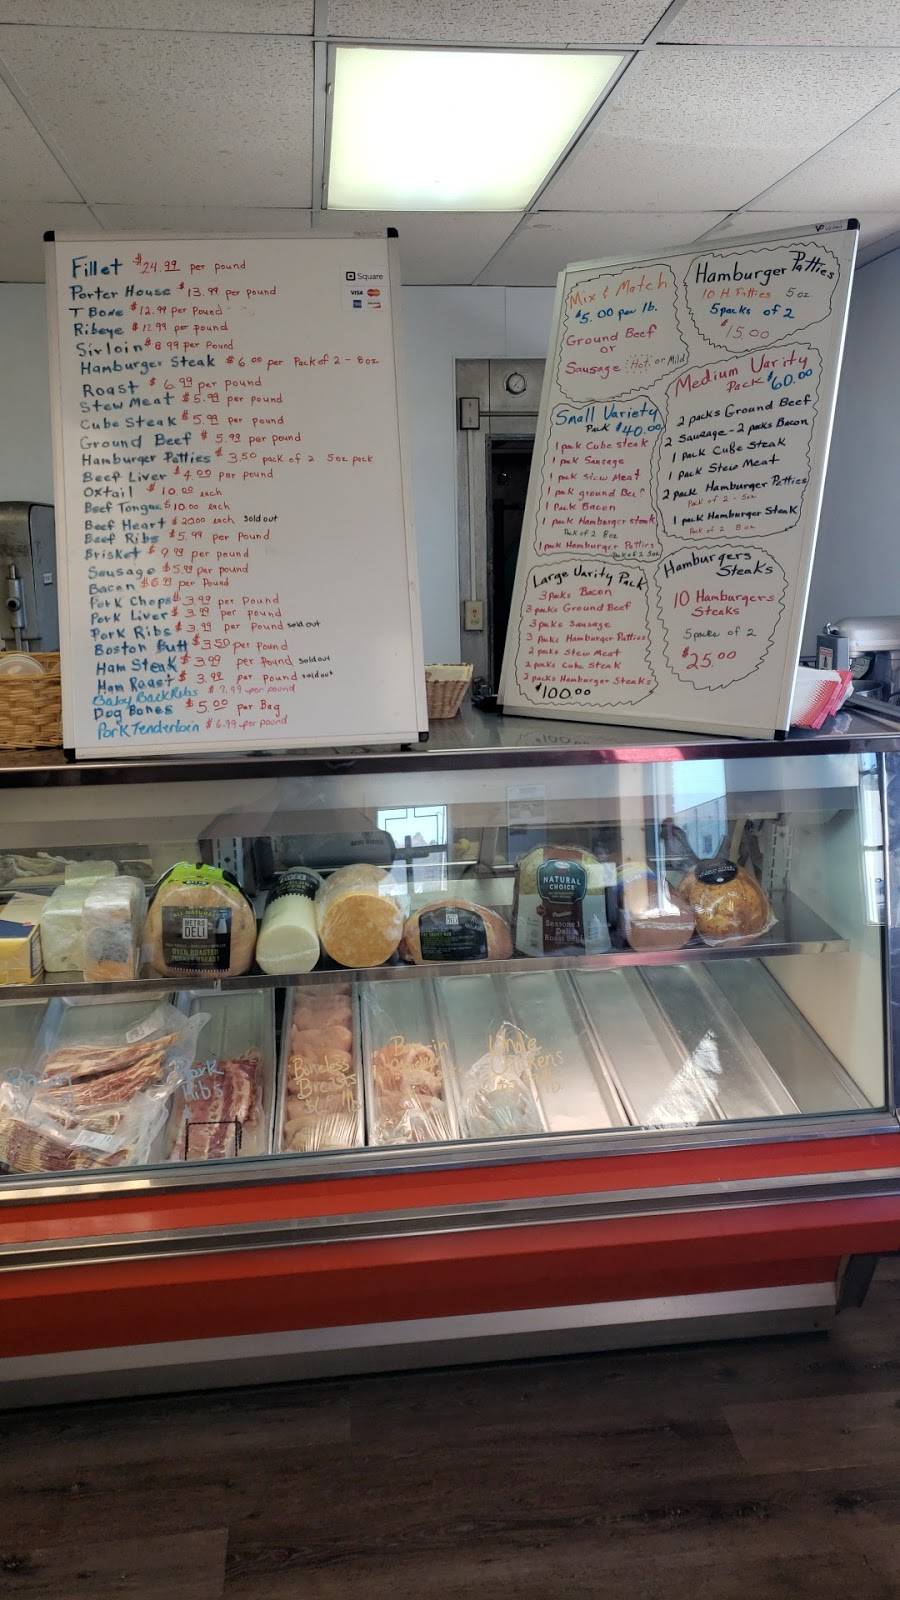 Fillet $24.99 per pound
Square
VISA
Porter House $13.99 per pound
T Bone $12.99 per Pound
Ribeye $12.99 per pound
Sirloin $8.99 per Pound
Hamburger Steak $6.00 per Pack of 2 - 8oz
Roast $6.99 per pound
Stew Meat $5.99 per pound
Cube Steak $5.99 per pound
Ground Beef $5.99 per pound
Hamburger Patties $3.50 pack of 2 5oz pack
Beef Liver $4.00 per pound
Oxtail $10.00 each
Beef Tongue $10.00 each
Beef Heart $20.00 each Sold out
Beef Ribs $5.99 per pound
Brisket $9.99 per pound
Sausage $5.99 per pound
Bacon $6.99 per Pound
Pork Chops $3.99 per Pound
Pork Liver $3.99 per Pound
Pork Ribs $3.99 per Pound Sold out
Boston Butt $3.50 per Pound
Ham Steak $3.99 per Pound Sold out
Ham Roast $3.99 per Pound Sold out
Baby Back Ribs $7.99 per pound
Dog Bones $5.00 per Bag
Pork Tenderloin $6.99 per pound
Mix & Match
$5.00 per lb.
Ground Beef
or
Sausage Hot or Mild
Hamburger Patties
10 H. Patties 5 oz
5 packs of 2
$15.00
Small Variety
Pack $40.00
1 pack Cube Steak
1 pack Sausage
1 pack Stew Meat
1 pack ground Beef
1 Pack Bacon
1 pack Hamburger steak
Pack of 2 8oz
1 pack Hamburger Patties
Pack of 2 5oz
Medium Varity
Pack $60.00
2 packs Ground Beef
2 Sausage - 2 packs Bacon
1 pack Cube Steak
1 pack Stew Meat
2 pack Hamburger Patties
Pack of 2 - 5oz
1 pack Hamburger Steak
Pack of 2 8oz
Large Varity Pack
3 packs Bacon
3 packs Ground Beef
3 packs Sausage
3 packs Hamburger Patties
2 packs Stew Meat
2 packs Cube Steak
2 packs Hamburger Steaks
$100.00
Hamburgers
Steaks
10 Hamburgers
Steaks
5 packs of 2
$25.00
ALL NATURAL
METRO
DELI
OVEN ROASTED
TURKEY BREAST
NATURAL
CHOICE
Pork
Ribs
Boneless
Breasts
Whole
Chickens